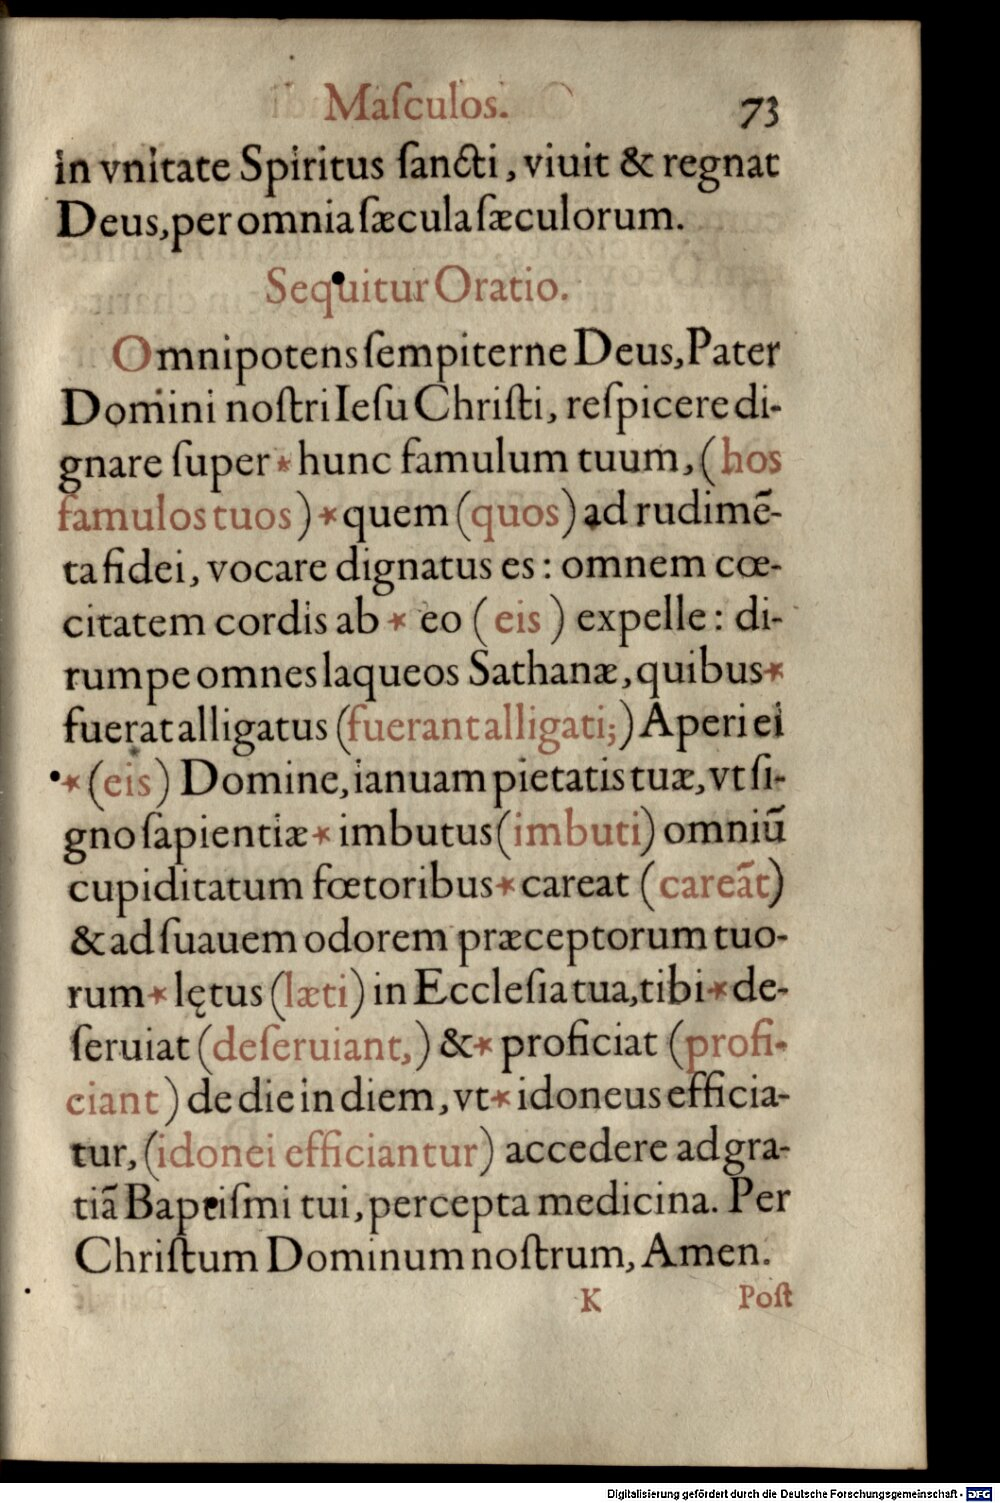 Maſculos. 73
in vnitate Spiritus ſancti, viuit & regnat
Deus, per omnia ſæcula ſæculorum.
Sequitur Oratio.
Omnipotens ſempiterne Deus, Pater
Domini noſtri Ieſu Chriſti, reſpicere di-
gnare ſuper * hunc famulum tuum, (hos
famulos tuos) * quem (quos) ad rudimẽ-
ta fidei, vocare dignatus es: omnem cœ-
citatem cordis ab * eo (eis) expelle: di-
rumpe omnes laqueos Sathanæ, quibus *
fuerat alligatus (fuerant alligati;) Aperi ei
* (eis) Domine, ianuam pietatis tuæ, vt ſi-
gno ſapientiæ * imbutus (imbuti) omniũ
cupiditatum fœtoribus * careat (careãt)
& ad ſuauem odorem præceptorum tuo-
rum * lętus (læti) in Eccleſia tua, tibi * de-
ſeruiat (deſeruiant,) & * proficiat (profi-
ciant) de die in diem, vt * idoneus efficia-
tur, (idonei efficiantur) accedere ad gra-
tiã Baptiſmi tui, percepta medicina. Per
Chriſtum Dominum noſtrum, Amen.
K Poſt
Digitalisierung gefördert durch die Deutsche Forschungsgemeinschaft - DFG